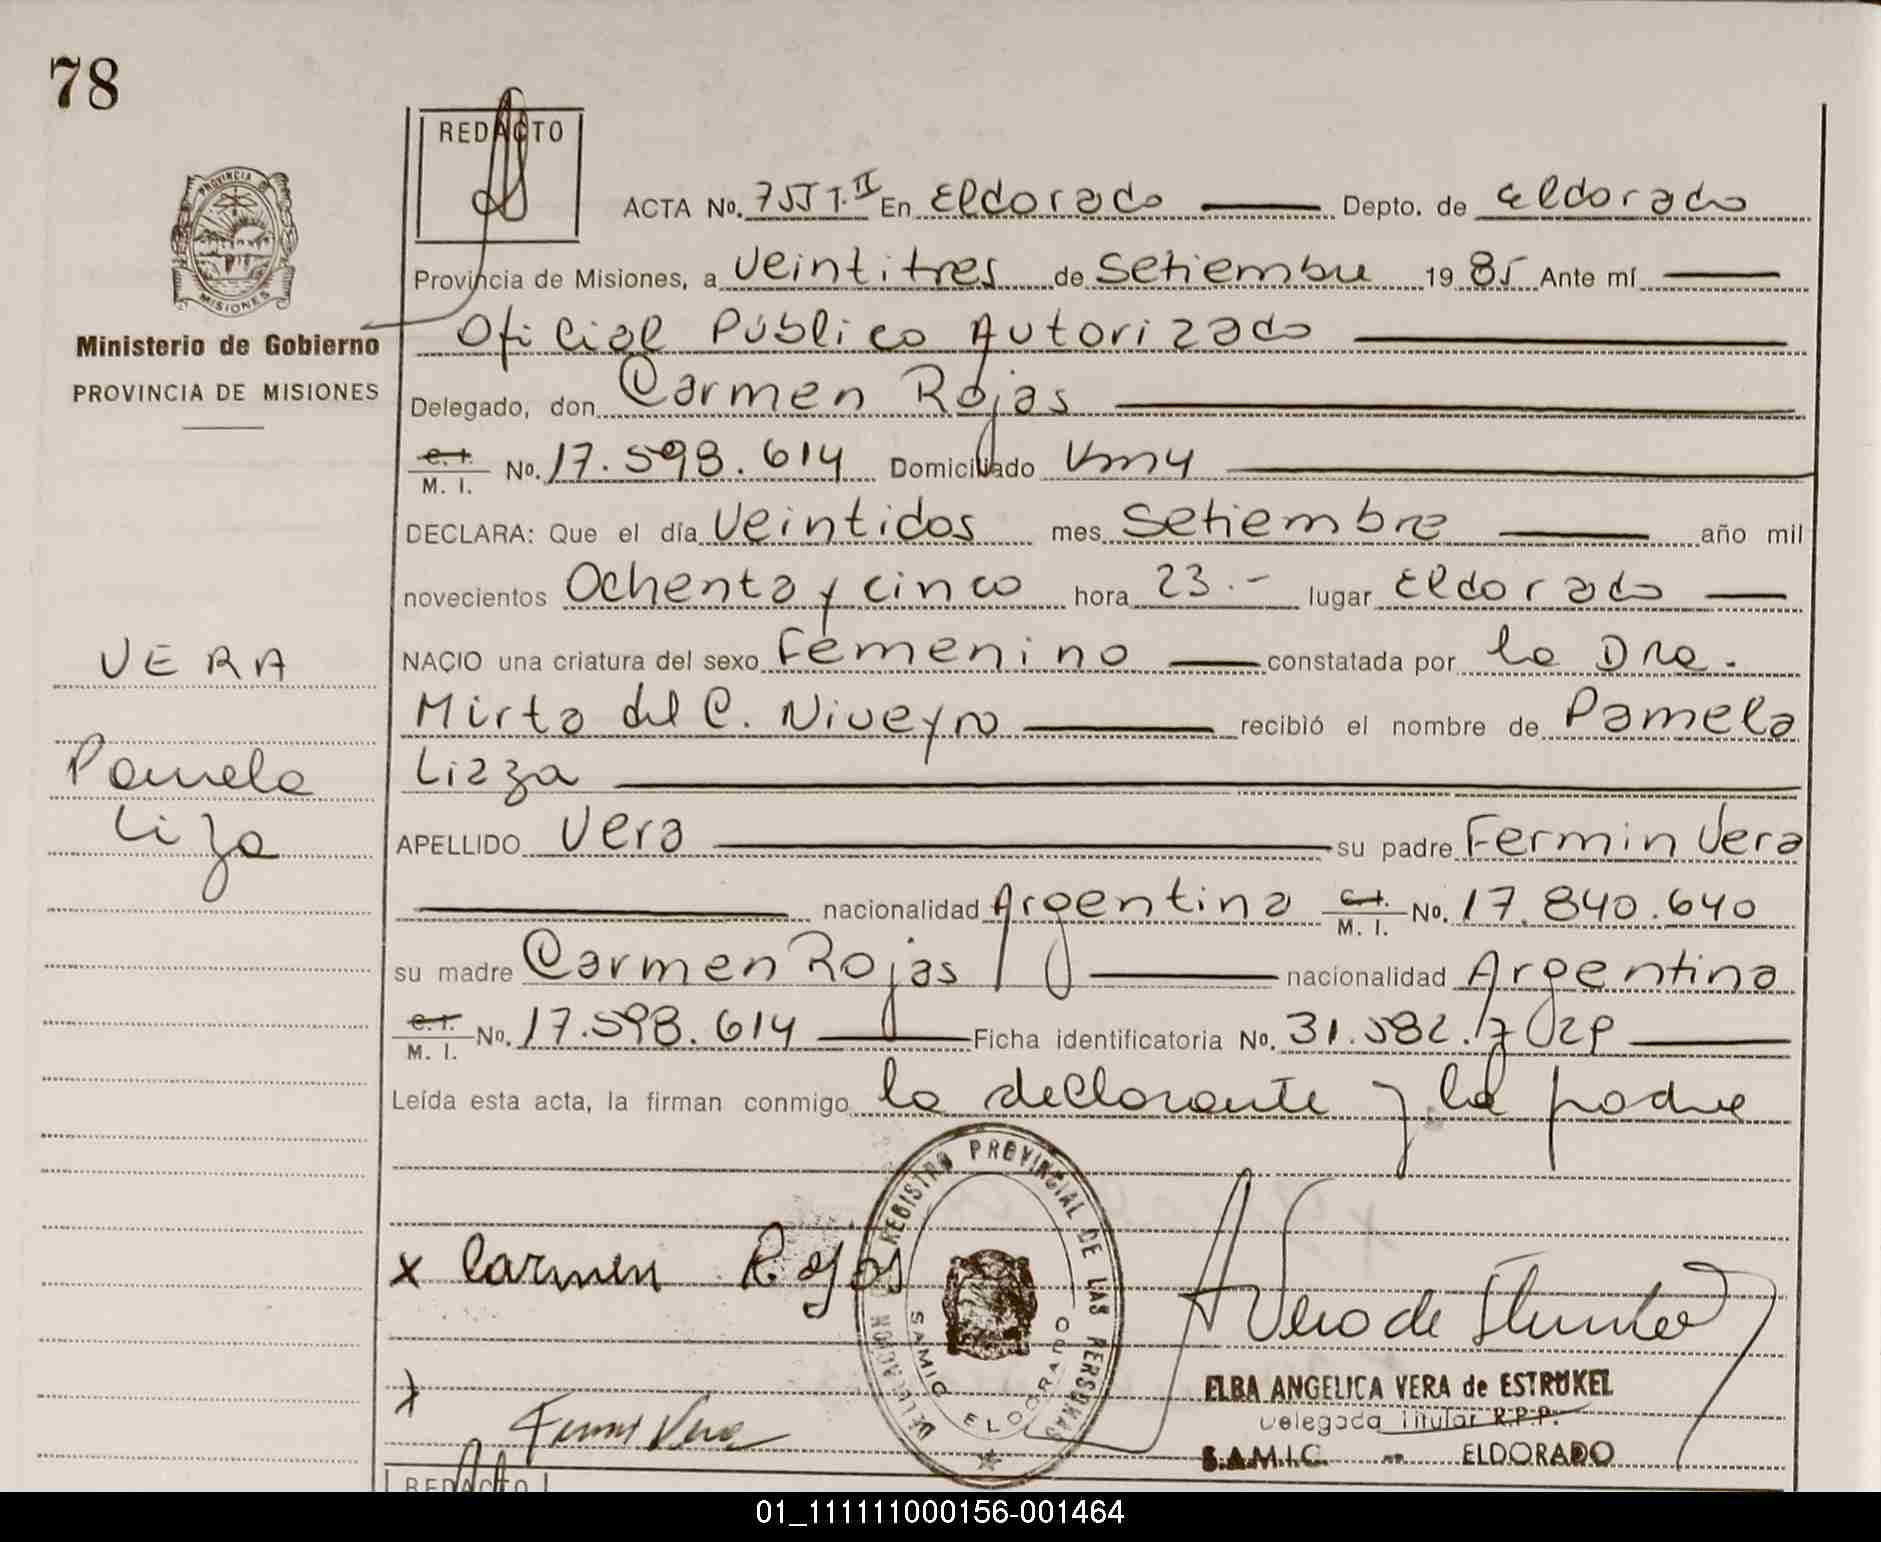 78
REDACTO
PROVINCIA DE
MISIONES
Ministerio de Gobierno
PROVINCIA DE MISIONES
VERA
Pamela
Liza
ACTA No. 755 T. II En Eldorado Depto. de Eldorado
Provincia de Misiones, a veintitres de Setiembre 19 85 Ante mí
Oficial Público Autorizado
Delegado, don Carmen Rojas
C. I. M. I. No. 17.598.614 Domiciliado
DECLARA: Que el día veintidos mes Setiembre año mil
novecientos Ochenta y cinco hora 23.- lugar Eldorado
NACIO una criatura del sexo Femenino constatada por la Dra.
Mirta del C. Niveyro recibió el nombre de Pamela
Lizza
APELLIDO Vera su padre Fermin Vera
nacionalidad Argentina C. I. M. I. No. 17.840.640
su madre Carmen Rojas nacionalidad Argentina
C. I. M. I. No. 17.598.614 Ficha identificatoria No. 31.582.
Leída esta acta, la firman conmigo la declarante y el padre
x Carmen Rojas
DELEGACION REGISTRO PROVINCIAL DE LAS PERSONAS
SAMIC ELDORADO
A Vera de
ELBA ANGELICA VERA de ESTRUKEL
Delegada Titular R.P.P.
S.A.M.I.C. - ELDORADO
x Fermin Vera
REDACTO
01_111111000156-001464